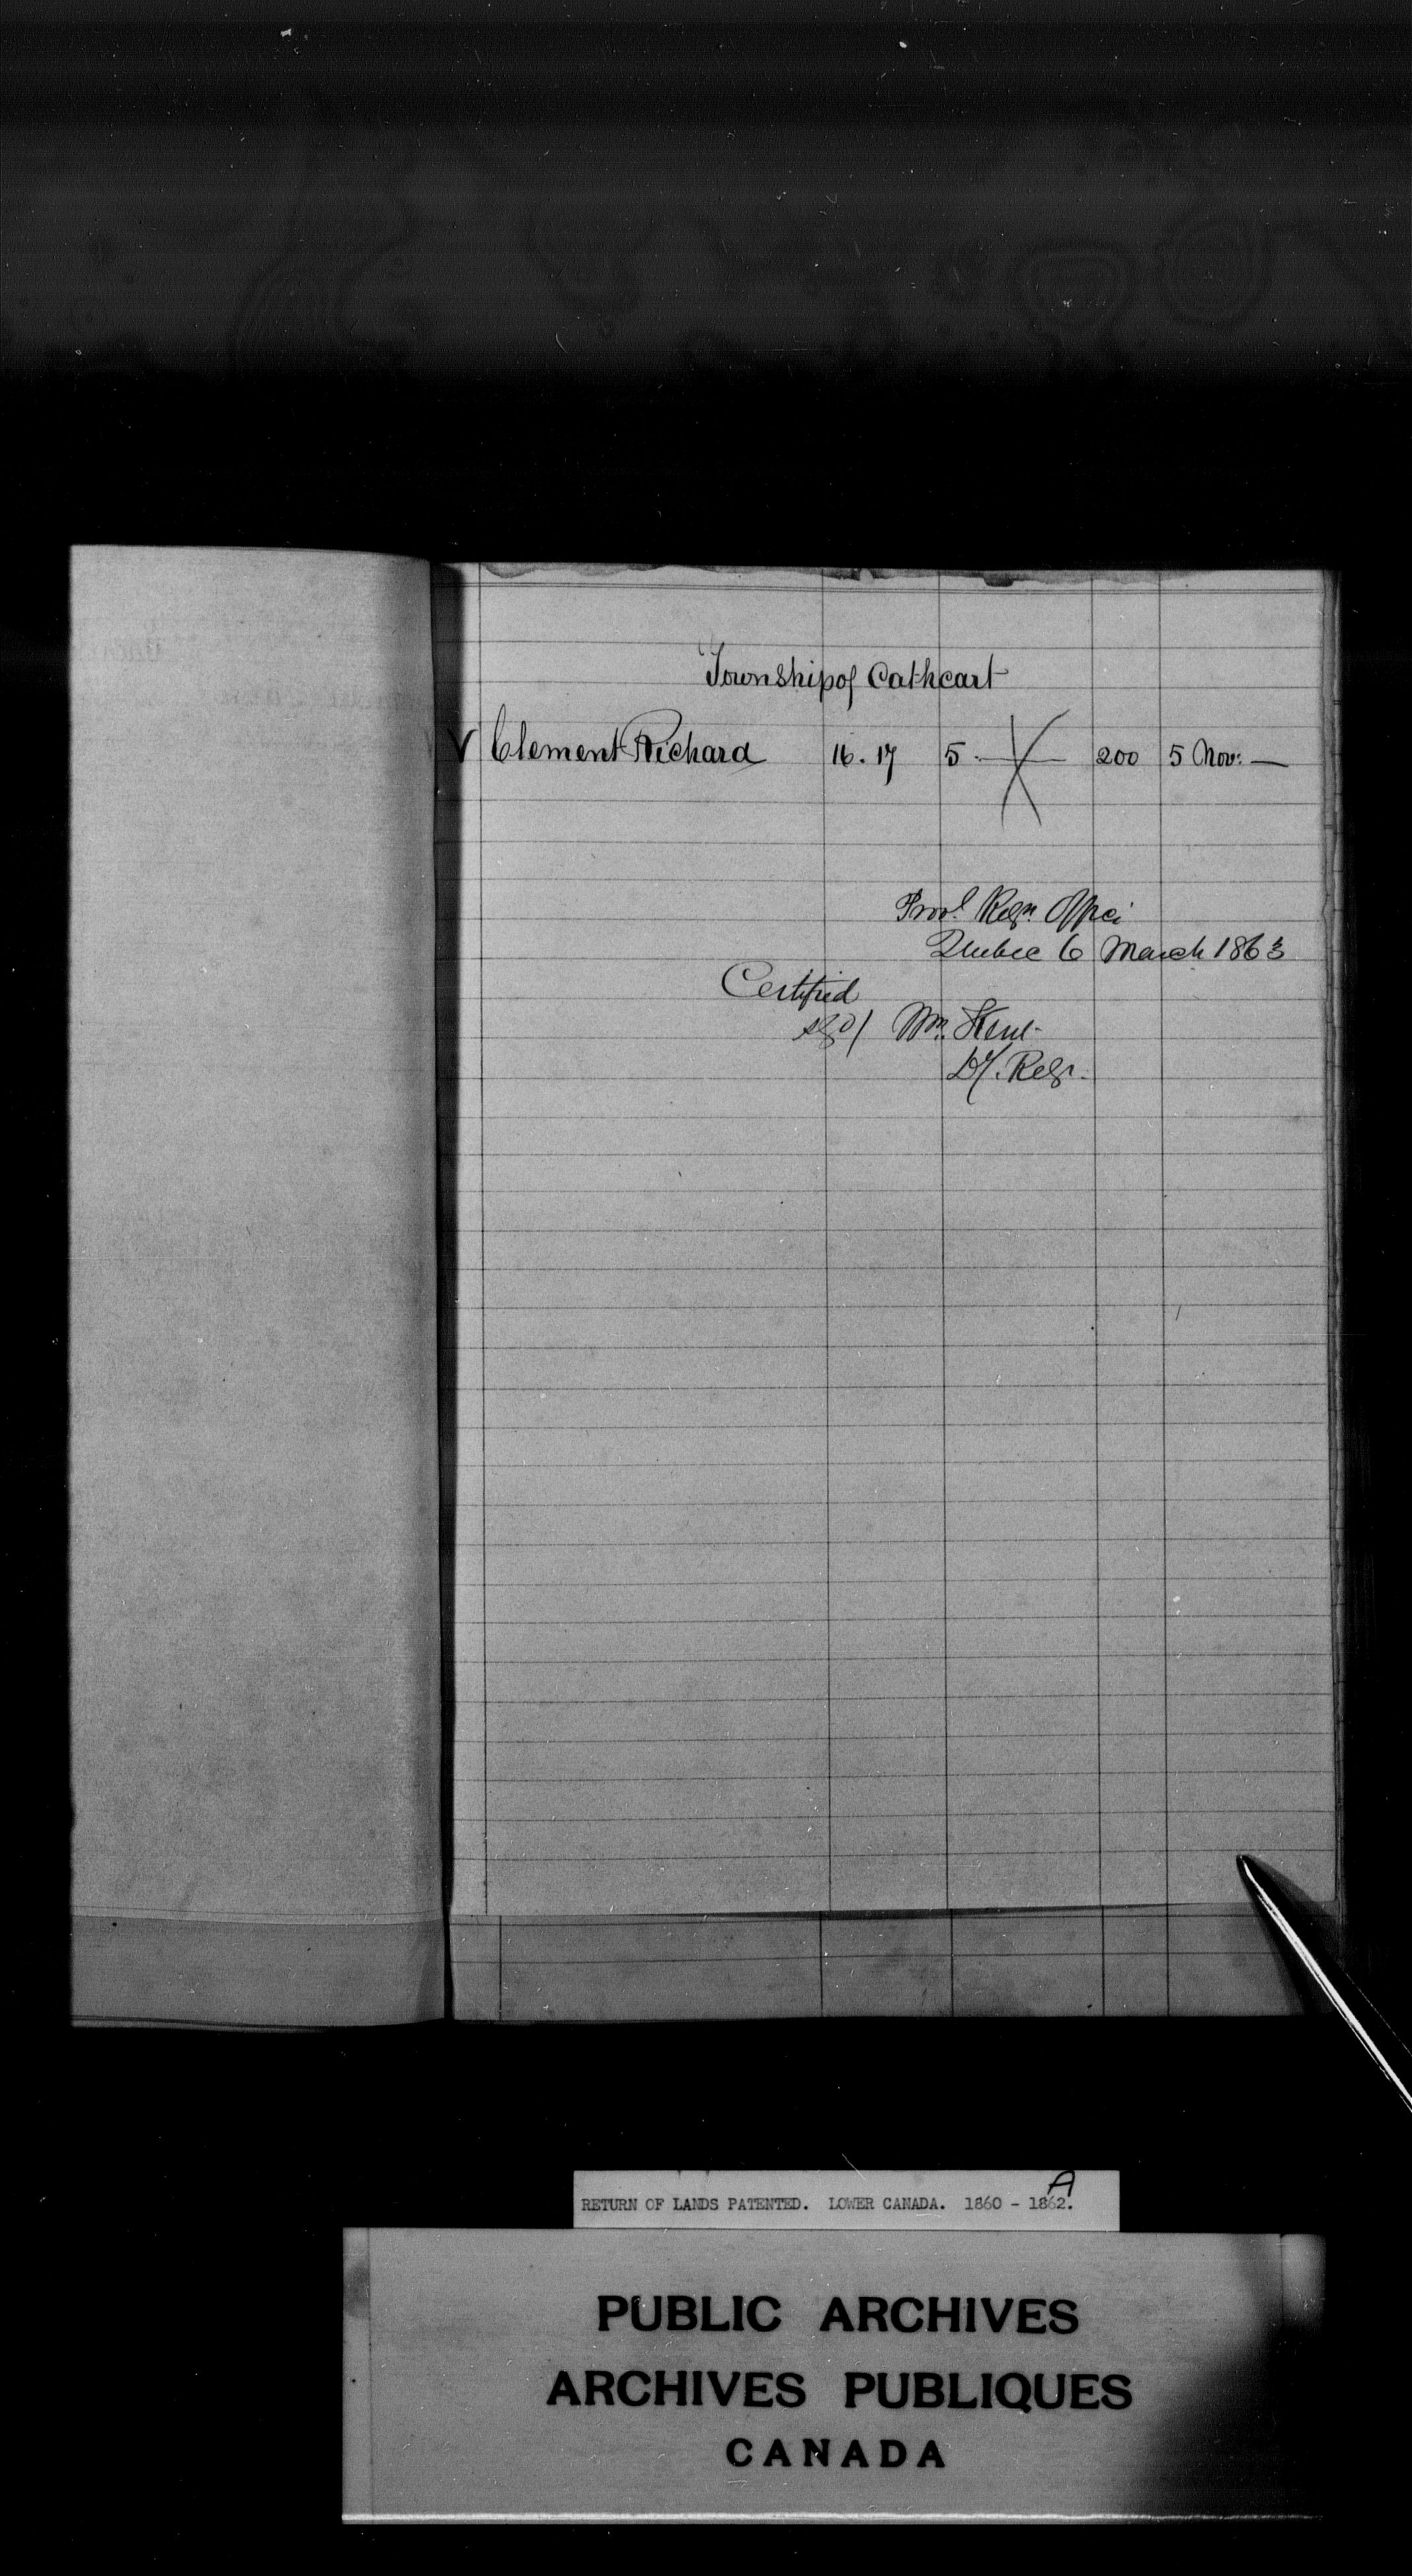 Township of Cathcart
V Clement Richard 16. 17 5 200 5 Nov: —
Provl. Regr. Office
Quebec 6 March 1863
Certified
sgd/ Wm. Kent
Dy. Regr.
A
RETURN OF LANDS PATENTED. LOWER CANADA. 1860 - 1862.
PUBLIC ARCHIVES
ARCHIVES PUBLIQUES
CANADA